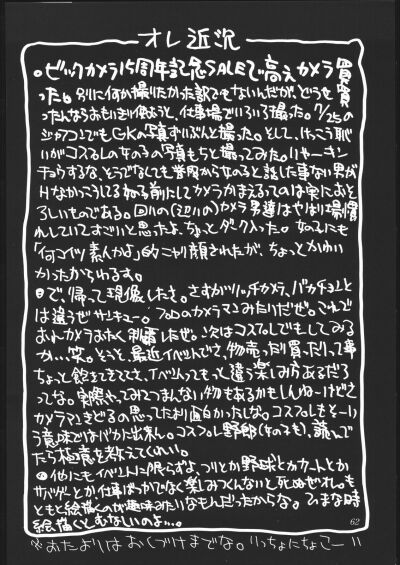 オレ近況
○ビックカメラ15周年記念SALEで高えカメラ買
った。別に何か撮りたかった訳でもないんだが、どうせ買
ったんならおもいきり使おうと、仕事場でいろいろ撮った。7/25の
ジャフコンでもGKの写真ずいぶんと撮った。そして、けっこう恥
いがコスプレのなのるの写真もちと撮ってみた。いやーキン
チョウするな、そうでなくても普段からなのると話した事ない男が
Hなかっこうしてる
前にしてカメラかまえるってのは実におそ
ろしいものである。回りの(辺りの)カメラ男達はやはり場慣
れしていてすごいと思ったよ。ちょっとダーク入った。
「何コイツ素人かよ」的ニヤリ顔されたが、ちょっとかわい
かったからゆるす。
○で、帰って現像したさ。さすがリッチカメラ、バカチョンと
は違うぜサンキュー。プロのカメラマンみたいだぜ。これで
おれもカメラおたく
だぜ。次はコスプレでもしてみる
か…、笑。そうそう最近イベントでさ、物売ったり買ったりって事
ちょっと飽きてきててさ、イベントってもっと違う楽しみ方あるだろ
ってな。実際やってみてつまんない物もあるかもしんねーけどさ
カメラマンきどるの思ってたより面白かったしな。コスプレもそーい
う意味ではバカに出来ん。コスプレ野郎(なのるも)、読んで
たら極意を教えてくれい。
○他にもイベントに限らずよ、つりとか野球とかカートとか
サバゲーとか仕事ばっかでなく楽しみつくんないと死ぬぜ。オレもも
ともと絵描くのが趣味みたいなもんだったからな。ひまな時
絵描くとむなしいのよ…。
62
※おたよりはおくづけまでな。いっちょにちょこー!!